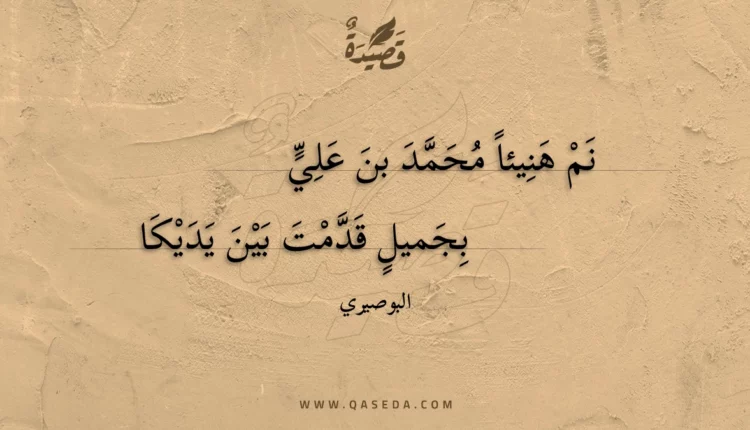 قَصِيْدَةٌ
نَمْ هَنِيئاً مُحَمَّدَ بنَ عَلِيٍّ
بِجَميلٍ قَدَّمْتَ بَيْنَ يَدَيْكَا
البوصيري
WWW.QASEDA.COM